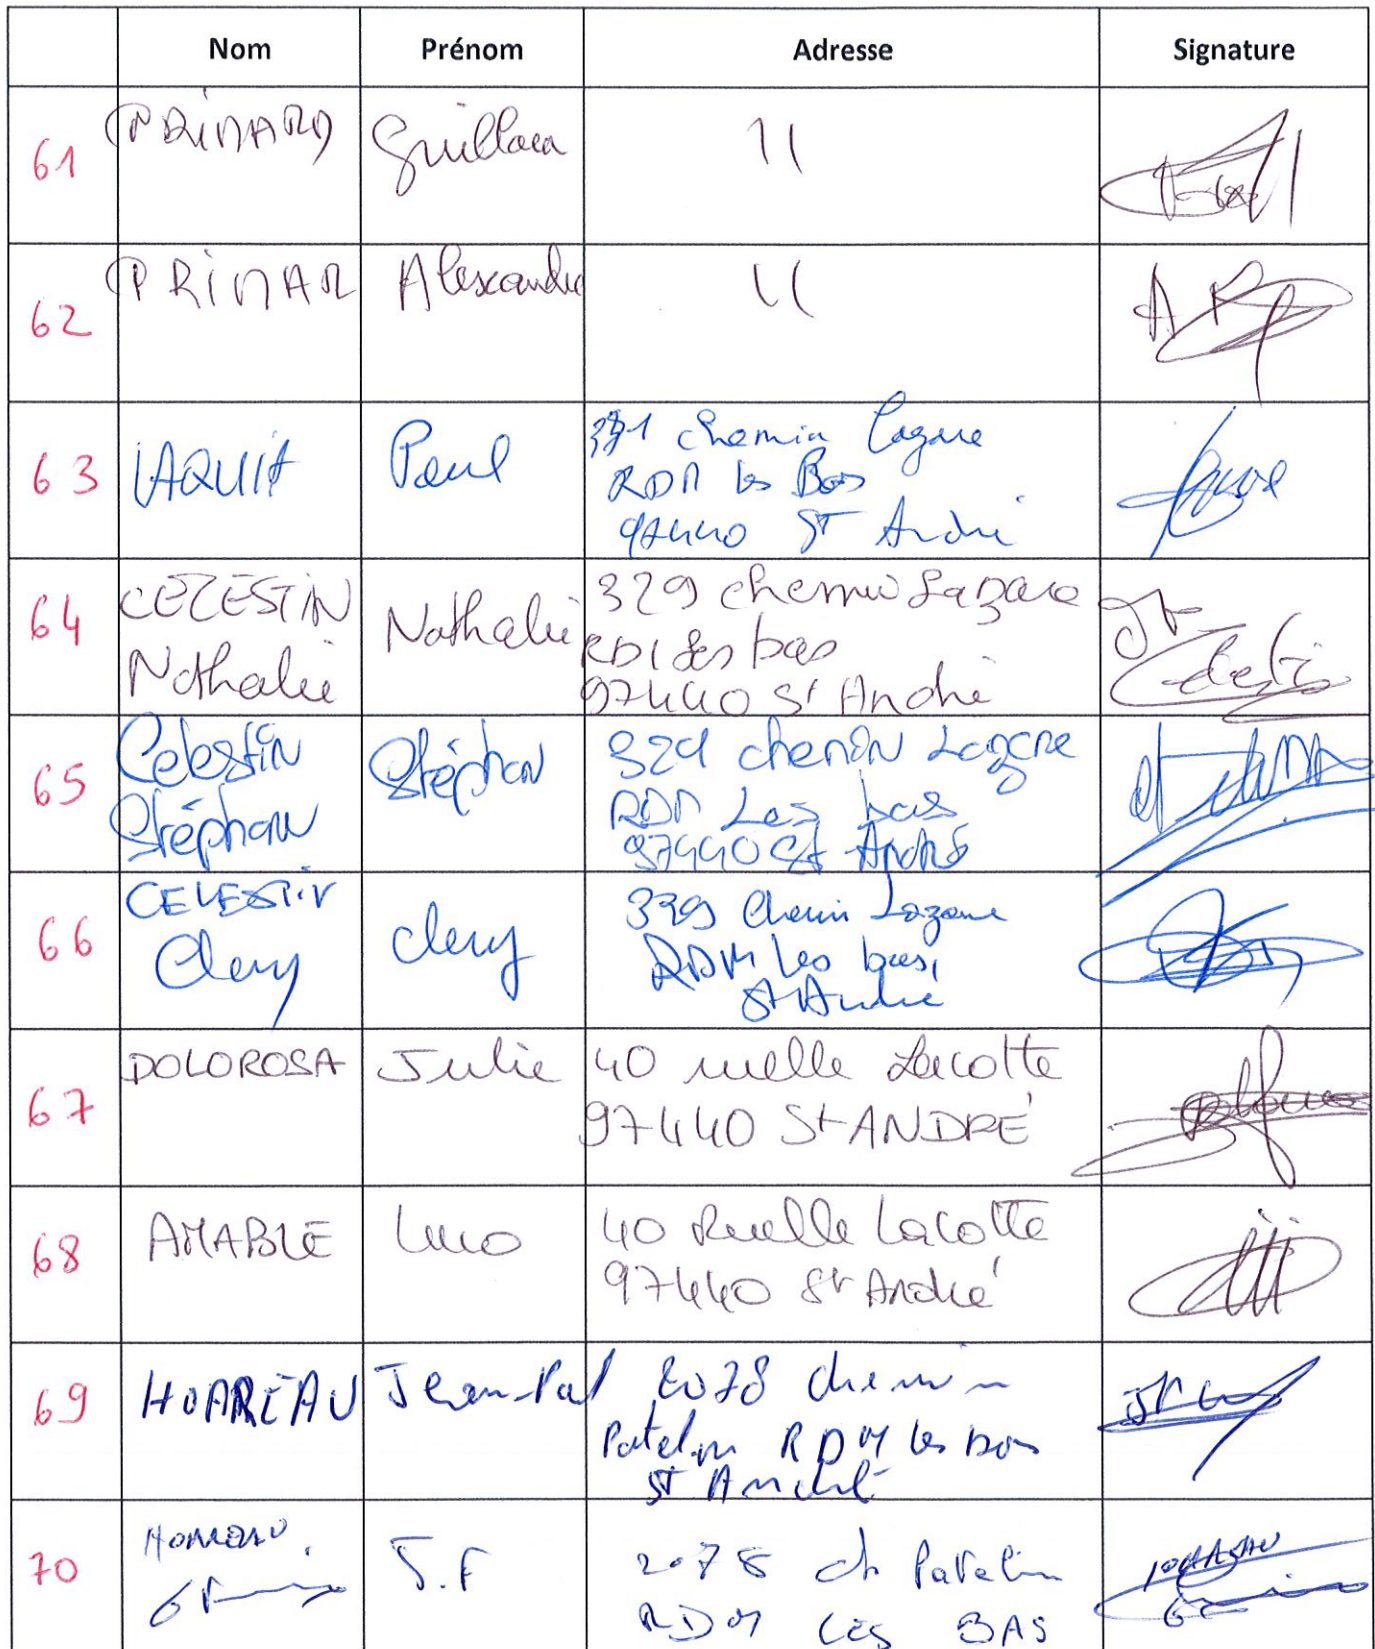 Nom Prénom Adresse Signature
61 PRIMARD Guillaum 11
62 PRIMAR Alexandre 11
63 VAQUIT Paul 331 chemin Lazare
RDM les Bas
97440 ST André
64 CELESTIN Nathalie 329 chemin Lazare
Nathalie RDM les bas
97440 St André
65 Celestin Stéphan 329 chemin Lazare
Stéphan RDM Les bas
97440 St André
66 CELESTIN Clery 329 Chemin Lazare
Clery RDM les bas,
St André
67 DOLOROSA Julie 40 ruelle Lacotte
97440 St ANDRÉ
68 AMABLE Luco 40 Ruelle Lacotte
97440 St André
69 HOAREAU Jean-Pal 2078 chemin
Patelin RDM les Bas
ST André
70 HOAREAU J.F 2078 ch Patelin
RDM LES BAS